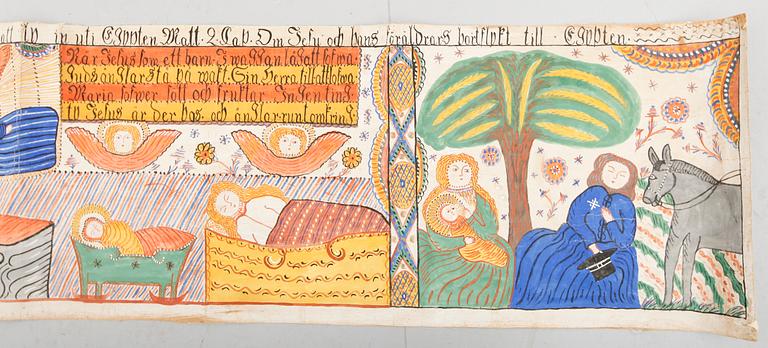 in uti Egÿpten Matt. 2 Cap. Om Jesu och hans föräldrars bortflykt till Egÿpten.
När Jesus som ett barn. I waggan lå satt sofwa.
Guds änglar stå på wakt. Sin Herra till att lofwa
Maria sofwer sött och fruktar Ingen ting
ty Jesus är der hos. och änglar runt omkring